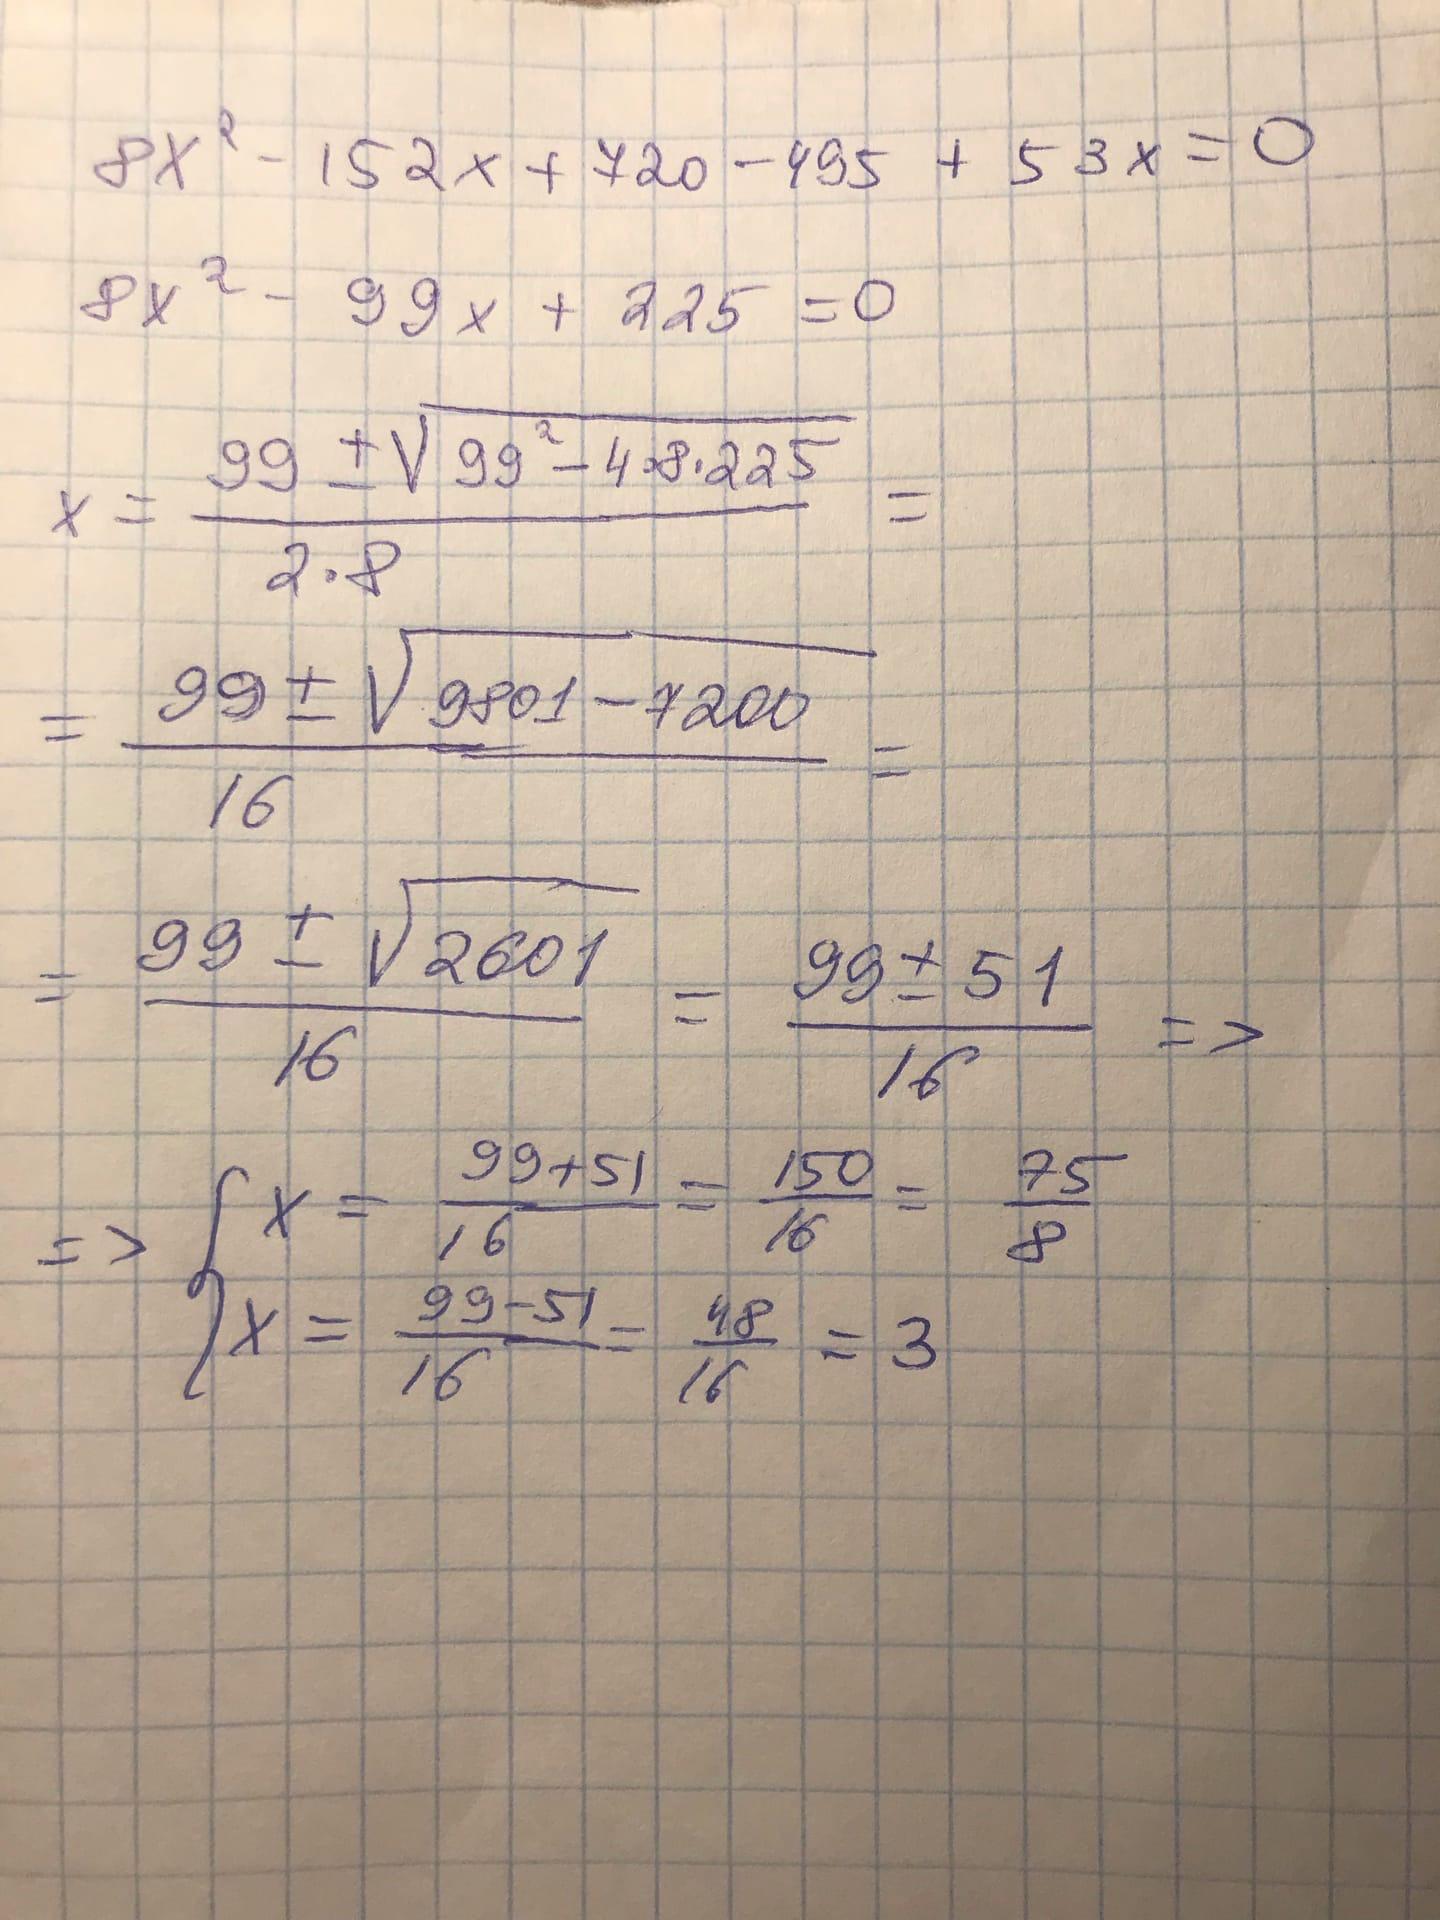 8x² - 152x + 720 - 495 + 53x = 0
8x² - 99x + 225 = 0
x = (99 ± √(99² - 4·8·225))/(2·8) =
= (99 ± √(9801 - 7200))/16 =
= (99 ± √2601)/16 = (99 ± 51)/16 =>
=> { x = (99+51)/16 = 150/16 = 75/8
x = (99-51)/16 = 48/16 = 3